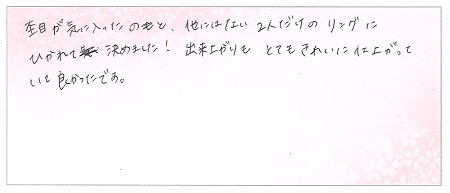 杢目が気に入ったのもと、他にはない2人だけのリングに
ひかれて決めました! 出来上がりも とてもきれいに仕上がって
いて良かったです。